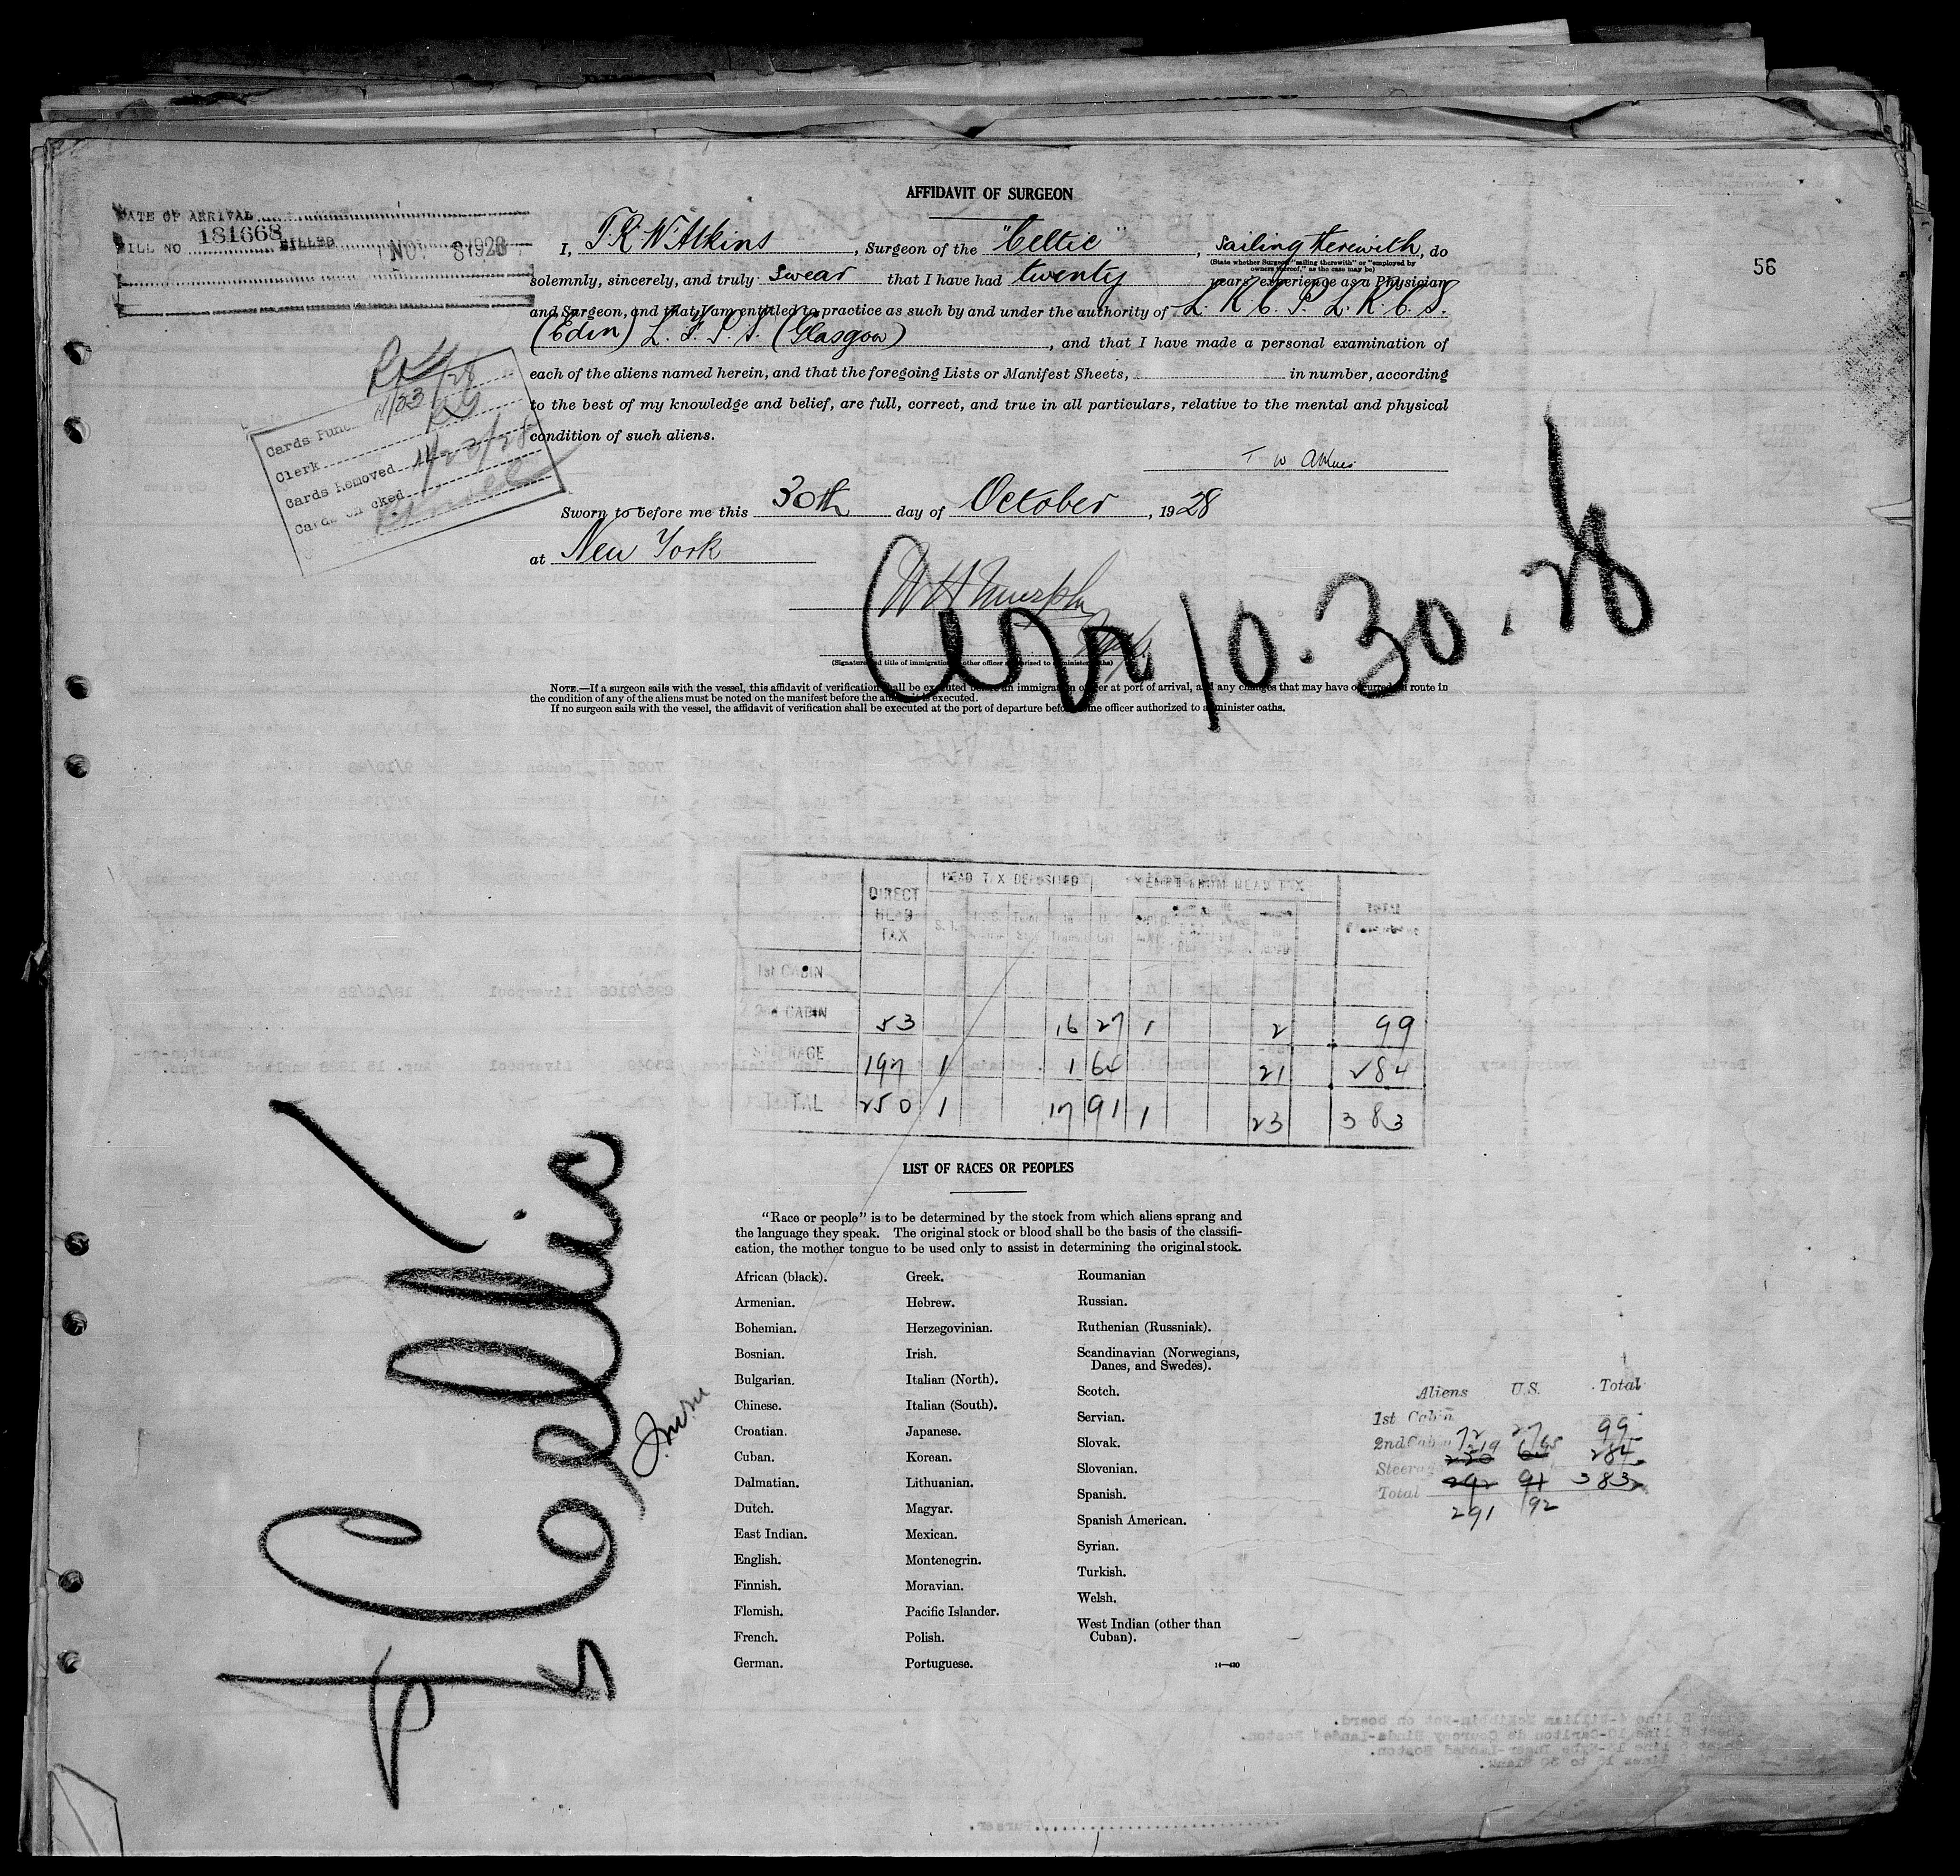 AFFIDAVIT OF SURGEON
DATE OF ARRIVAL
BILL NO 181668 BILLED NOV 8 1928
56
I, T.R.W. Atkins, Surgeon of the "Celtic", sailing therewith, do
(State whether Surgeon "sailing therewith" or "employed by
owners thereof," as the case may be)
solemnly, sincerely, and truly swear that I have had twenty years' experience as a Physician
and Surgeon, and that I am entitled to practice as such by and under the authority of L. R. C. P. L. R. C. S.
(Edin) L. F. P. S. (Glasgow), and that I have made a personal examination of
each of the aliens named herein, and that the foregoing Lists or Manifest Sheets, in number, according
to the best of my knowledge and belief, are full, correct, and true in all particulars, relative to the mental and physical
condition of such aliens.
T W Atkins
Cards Punched 11/23/28
Clerk
Cards Removed 11/23/28
Cards Checked
Sworn to before me this 30th day of October, 1928
at New York
W H Murphy
10.30.28
(Signature and title of immigration or other officer authorized to administer oaths)
NOTE.—If a surgeon sails with the vessel, this affidavit of verification shall be executed before an immigration officer at port of arrival, and any changes that may have occurred en route in
the condition of any of the aliens must be noted on the manifest before the affidavit is executed.
If no surgeon sails with the vessel, the affidavit of verification shall be executed at the port of departure before some officer authorized to administer oaths.
HEAD TAX DEPOSITED EXEMPT FROM HEAD TAX
DIRECT HEAD TAX S. I.
1st CABIN
2nd CABIN 53 16 27 1 2 99
STEERAGE 197 1 1 64 21 284
TOTAL 250 1 17 91 1 23 383
LIST OF RACES OR PEOPLES
"Race or people" is to be determined by the stock from which aliens sprang and
the language they speak. The original stock or blood shall be the basis of the classifi-
cation, the mother tongue to be used only to assist in determining the original stock.
African (black).
Armenian.
Bohemian.
Bosnian.
Bulgarian.
Chinese.
Croatian.
Cuban.
Dalmatian.
Dutch.
East Indian.
English.
Finnish.
Flemish.
French.
German.
Greek.
Hebrew.
Herzegovinian.
Irish.
Italian (North).
Italian (South).
Japanese.
Korean.
Lithuanian.
Magyar.
Mexican.
Montenegrin.
Moravian.
Pacific Islander.
Polish.
Portuguese.
Roumanian
Russian.
Ruthenian (Russniak).
Scandinavian (Norwegians,
Danes, and Swedes).
Scotch.
Servian.
Slovak.
Slovenian.
Spanish.
Spanish American.
Syrian.
Turkish.
Welsh.
West Indian (other than
Cuban).
14—430
Aliens U.S. Total
1st Cabin
2nd Cabin 72 27 99
Steerage 220 219 64 65 284
Total 292 91 383
291 92
Celtic